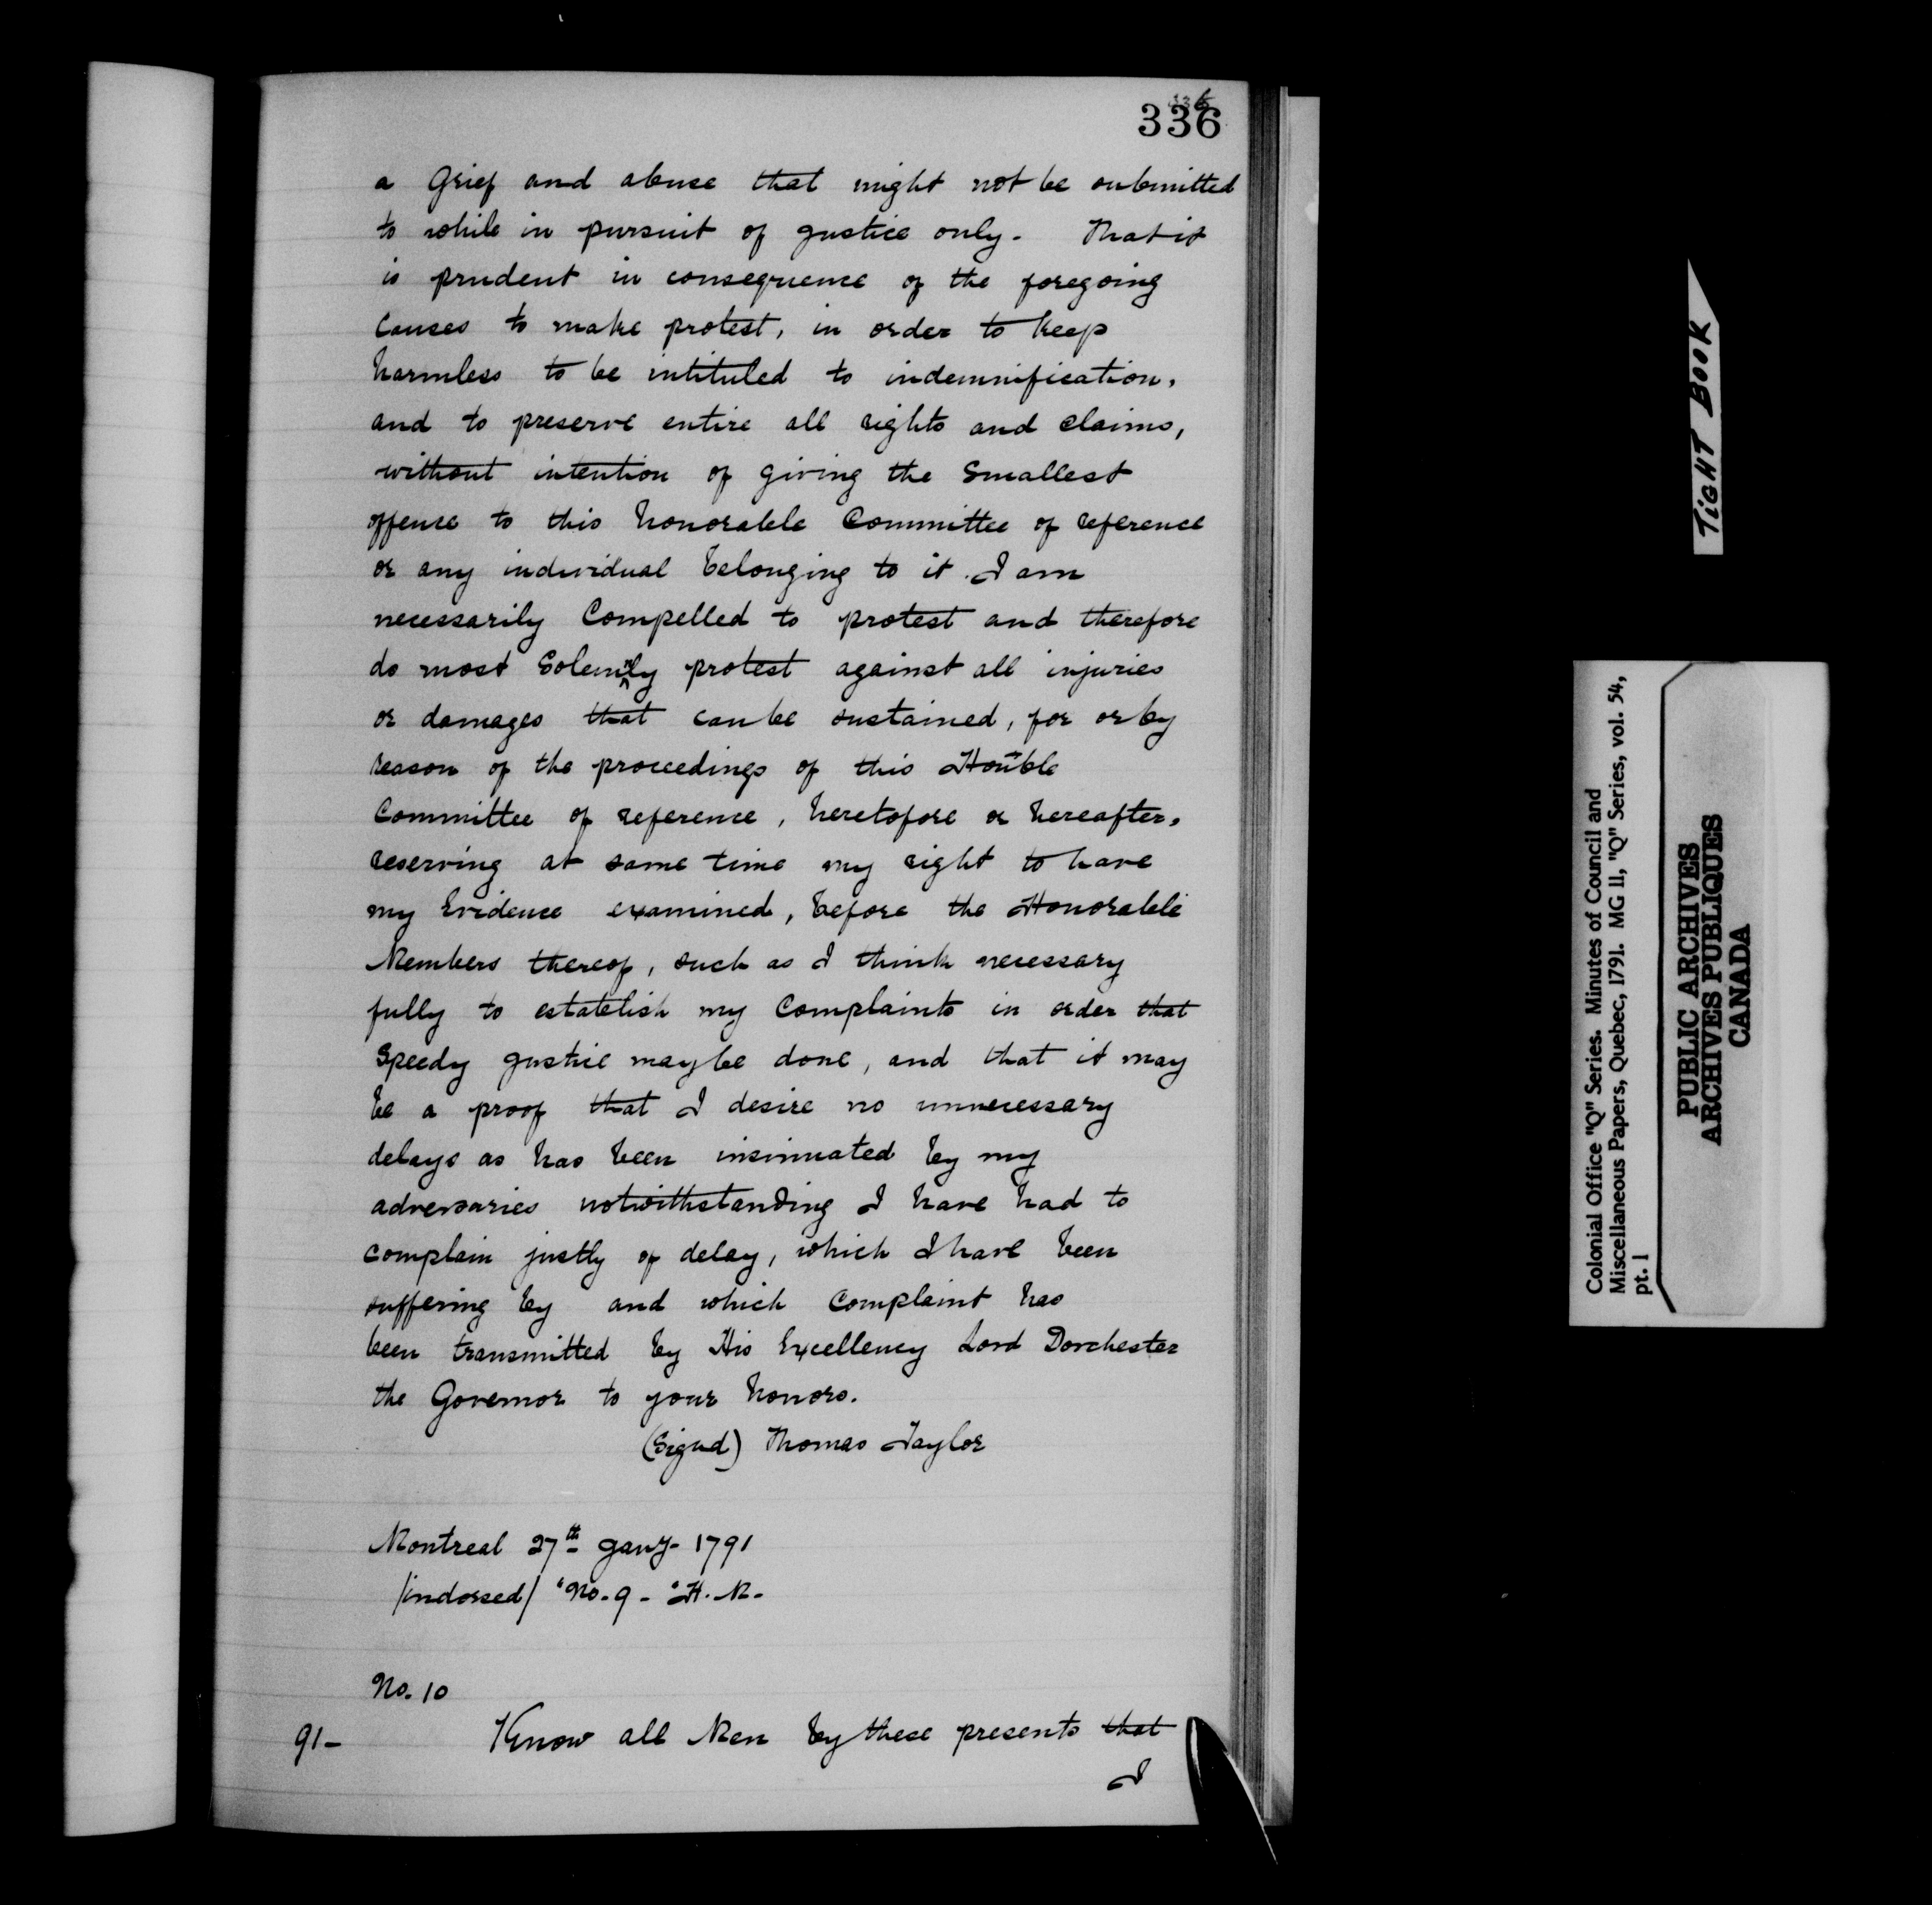 336
a Grief and abuse that might not be submitted
to while in pursuit of justice only. That it
is prudent in consequence of the foregoing
Causes to make protest, in order to keep
harmless to be intituled to indemnification,
and to preserve entire all rights and claims,
without intention of giving the Smallest
offence to this honorable Committee of reference
or any individual belonging to it. I am
necessarily Compelled to protest and therefore
do most Solemnly protest against all injuries
or damages that can be sustained, for or by
reason of the proceedings of this Honble
Committee of reference, heretofore or hereafter,
reserving at same time my right to have
my Evidence examined, before the Honorable
Members thereof, such as I think necessary
fully to establish my Complaints in order that
Speedy justice may be done, and that it may
be a proof that I desire no unnecessary
delays as has been insinuated by my
adversaries notwithstanding I have had to
complain justly of delay, which I have been
suffering by and which Complaint has
been transmitted by His Excellency Lord Dorchester
the Governor to your honors.
(Signd) Thomas Taylor
Montreal 27th Jany- 1791
/indorsed/ "No. 9 - "H. M.
No. 10
91- Know all Men by these presents that
I
TIGHT BOOK
Colonial Office "Q" Series. Minutes of Council and
Miscellaneous Papers, Quebec, 1791. MG 11, "Q" Series, vol. 54,
pt. 1
PUBLIC ARCHIVES
ARCHIVES PUBLIQUES
CANADA